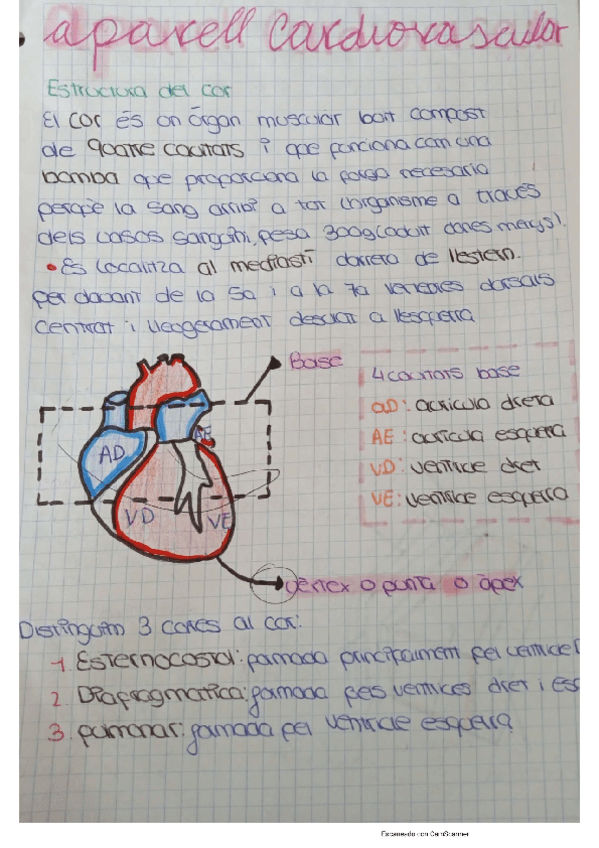 aparell cardiovascular
Estructura del cor
El cor és un òrgan muscular buit compost
de quatre cavitats i que funciona com una
bomba que proporciona la força necesaria
perquè la sang arribi a tot l'organisme a través
dels vasos sanguini, pesa 300g (adult dones menys).
• Es localitza al mediastí darrera de l'estern.
per davant de la 5a i a la 7a vertebres dorsals
Centrat i lleugerament desviat a l'esquerra
Base
4 cavitats base
AD: auricula dreta
AE: auricula esquerra
VD: ventricle dret
VE: ventricle esquerra
AE
AD
VD VE
vèrtex o punta o àpex
Distingim 3 cares al cor:
1. Esternocostal: formada principalment pel ventricle
2. Diafragmatica: formada pels ventricles dret i es
3. pulmonar: formada pel ventricle esquerra
Escaneado con CamScanner